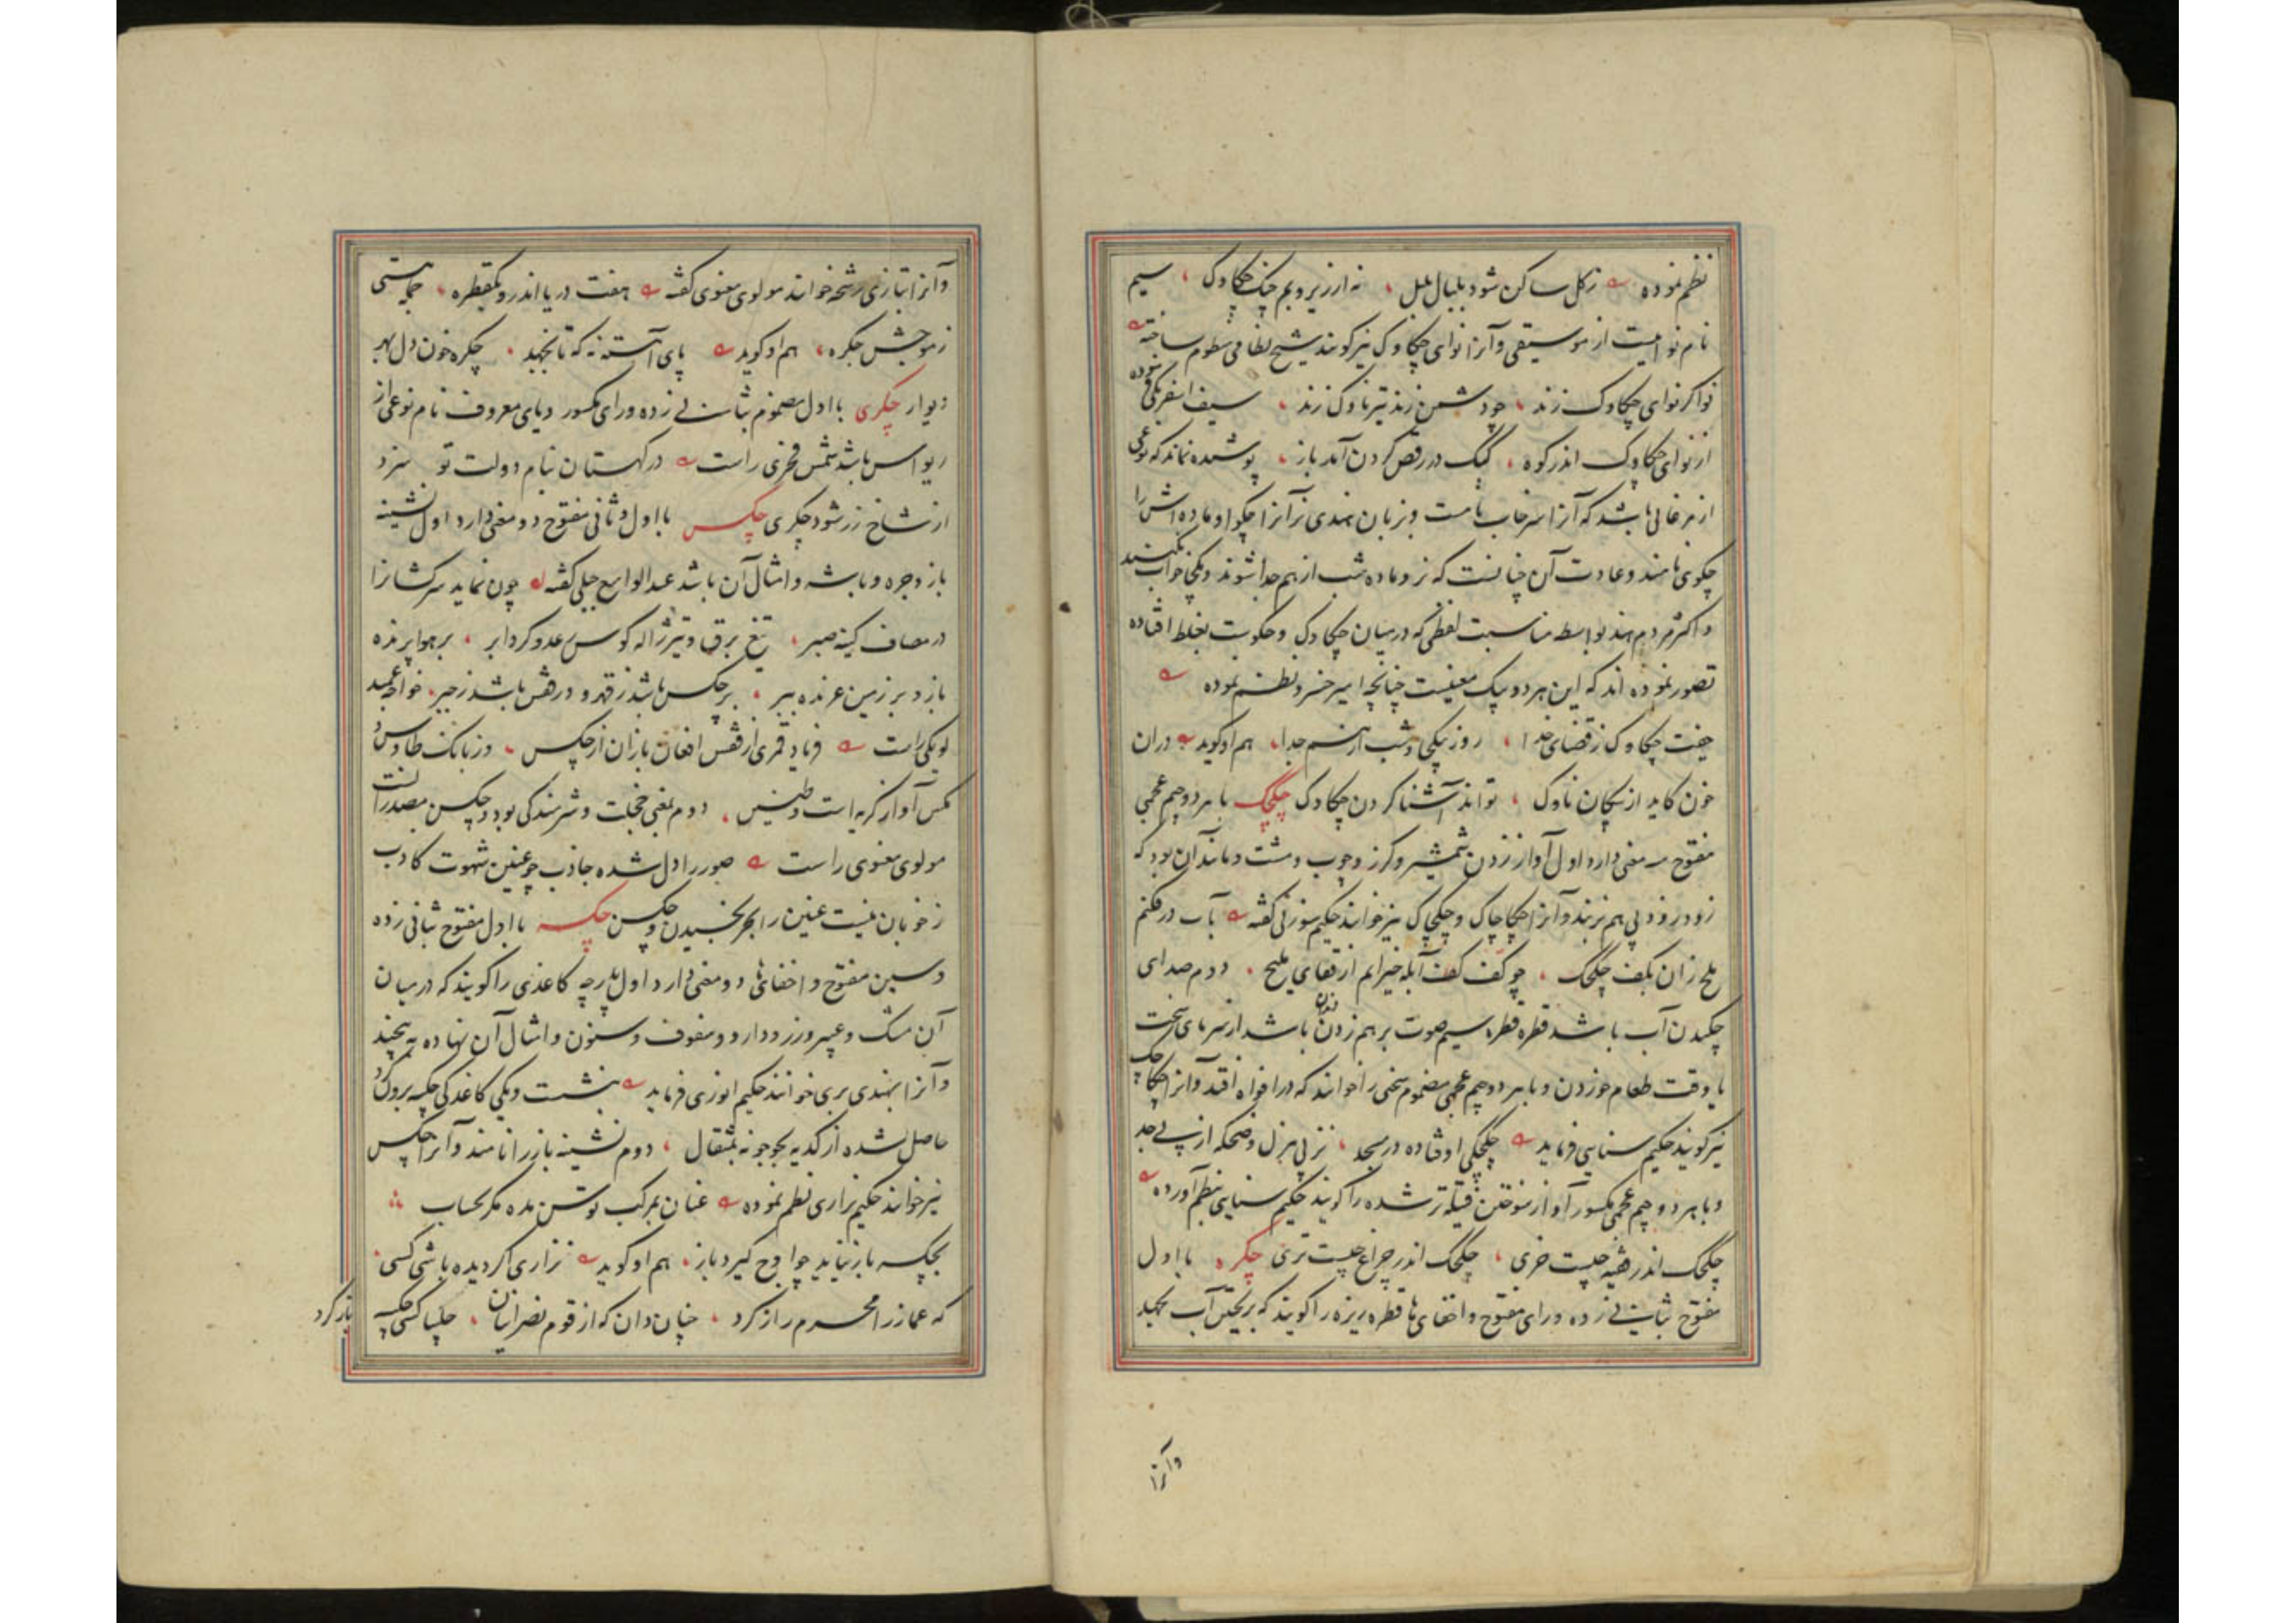 نظم نموده زکل ساکن شود بلبال بلبل نه از زیر و بم چنک چکاوک سیم
نام نوائیست از موسیقی و آنرا نوای چکاوک نیز کویند شیخ نظامی منظوم ساخته
نوا کر نوای چکاوک زند چو دشمن زند تیر ناوک زند سیف اسفرنکی نموده
از نوای چکاوک اندر کوه کبک در رقص کردن آمد باز پوشیده نماند که نوعی
از مرغابی باشد که آنرا سرخاب نامست و بزبان هندی نر آنرا چکوا و ماده اش را
چکوی نامند و عادت آن چنانست که نر و ماده شب از هم جدا شوند و یکجا خواب نکنند
و اکثر مردم هند بواسطه مناسبت لفظی که در میان چکاوک و چکویست بغلط افتاده
تصور نموده اند که این هر دو بیک معنیست چنانچه امیر خسرو نظم نموده
جفت چکاوک ز قضای خدا روز بیکی و شب از هم جدا هم او کوید دران
خون کاید از پیکان ناوک تواند آشنا کردن چکاوک چکچک با هر دو جیم عجمی
مفتوح سه معنی دارد اول آواز زدن شمشیر و کرز و چوب و مشت و مانند آن بود که
زود زود پی هم زنند و آنرا چکاچاک و چکچاک نیز خوانند حکیم سوزنی کفته باب درفکنم
ملح زان بکف چکچک چو کف کفت آبله خیزانم از قفای ملیح دوم صدای
چکیدن آب باشد قطره قطره سیم صوت بر هم زدن دندان باشد از سرمای سخت
یا وقت طعام خوردن و با هر دو جیم عجمی مضموم سخنی را خوانند که در افواه افتد و آنرا چکاچک
نیز کویند حکیم سنایی فرماید چکچکی اوفتاده در مسجد نز پی هزل و ضحکه از پی جد
و با هر دو جیم عجمی مکسور آواز سوختن فتیله تر شده را کویند حکیم سنایی بنظم آورده
چکچک اندر هیچیست خری چکچک اندر چراغ چیست تری چکره با اول
مفتوح بثانی زده و رای مفتوح و اخفای ها قطره ریزه را کویند که بریختن آب بجهد
وآنرا
وآنرا بتازی رشحه خوانند مولوی معنوی کفته هفت دریا اندرو یکقطره جمله هستی
ز موجش چکره هم او کوید پای آهسته نه که تا نجهد چکره خون دل بهر
دیوار چکری با اول مضموم بثانی زده و رای مکسور و یای معروف نام نوعی از
ریواس باشد شمس فخری راست در کهستان بنام دولت تو سزد
از شاخ زر شود چکری چکس با اول و ثانی مفتوح دو معنی دارد اول نشینه
باز و جره و باشه و امثال آن باشد عبدالواسع جبلی کفته چون نماید سرکشانرا
در مصاف کینه صبر تیغ برق و تیر ژاله کوس رعد و کرد ابر بر هوا پرنده
باز و بر زمین غرنده ببر بر چکس باشد ز قهر و در قفس باشد ز جبر خواجه عمید
لویکی راست فریاد قمری از قفس افغان بازان از چکس وز بانک طاوس و
مکس آواز کریه است و طنین دوم بمعنی خجلت و شرمندکی بود و چکسن مصدر آنست
مولوی معنوی راست صور را دل شده جاذب چو عنین شهوت کاذب
ز خوبان نیست عنین را بجز بخسیدن و چکسن چکسه با اول مفتوح بثانی زده
و سین مفتوح و اخفای ها دو معنی دارد اول پارچه کاغذی را کویند که در میان
آن مشک و عبیر و زر و دارو و سفوف و سنون و امثال آن نهاده به پیچند
و آنرا بهندی پری خوانند حکیم انوری فرماید بنشست و یکی کاغذکی چکسه برون کرد
حاصل شده از کدیه بجو جو نه بمثقال دوم نشینه باز را نامند و آنرا چکس
نیز خوانند حکیم نزاری نظم نموده عنان بمرکب توسن مده مکر بحساب
بچکسه باز نیاید چو اوج کیرد باز هم او کوید نزاری اکر دیده باشی کسی
که غماز را محرم راز کرد چنان دان که از قوم نصرانیان چلیپا کسی چکسه
باز کرد